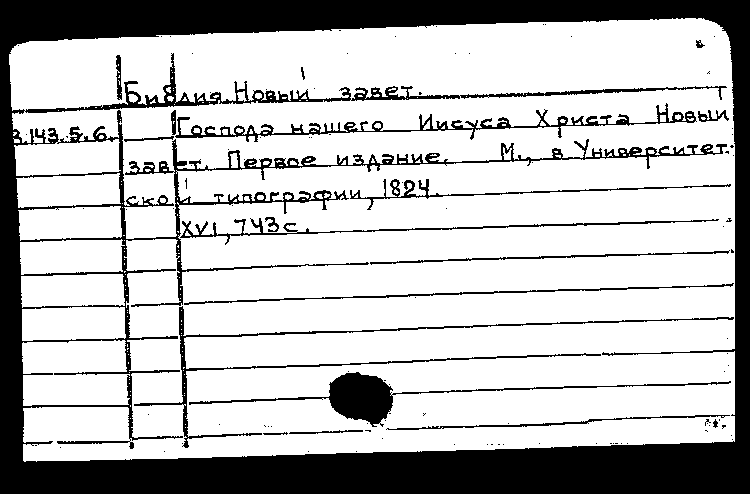 Библия. Новый завет.
3.143.5.6. Господа нашего Иисуса Христа Новый
завет. Первое издание. М., в Университет-
ской типографии, 1824.
XVI, 743 с.